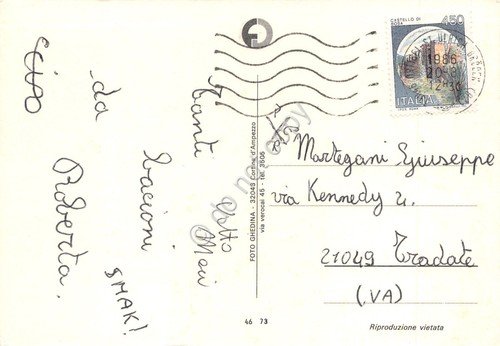 CASTELLO DI
450
ITALIA
1986
20·8
12·30
Tanti
Bacioni
da
Roberta.
e CIAO
SMAK!
FOTO GHEDINA - 32043 Cortina d'Ampezzo
via verocai 45 - tel. 3605
46 73
Martegani Giuseppe
via Kennedy 4.
21049 Tradate
(VA)
Riproduzione vietata
do not copy